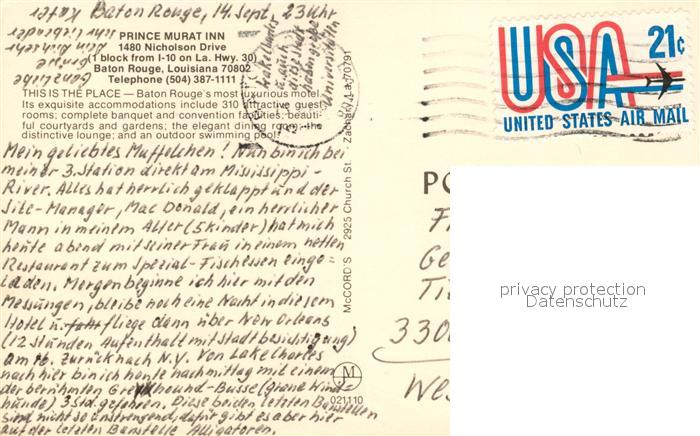 Baton Rouge, 14 Sept. 23 Uhr
PRINCE MURAT INN
1480 Nicholson Drive
(1 block from I-10 on La. Hwy. 30)
Baton Rouge, Louisiana 70802
Telephone (504) 387-1111
THIS IS THE PLACE — Baton Rouge's most luxurious motel.
Its exquisite accommodations include 310 attractive guest
rooms; complete banquet and convention facilities; beauti-
ful courtyards and gardens; the elegant dining room; the
distinctive lounge; and an outdoor swimming pool.
Mein geliebtes Muffelchen! Nun bin ich bei
meiner 3. Station direkt am Mississippi-
River. Alles hat herrlich geklappt und der
Site-Manager, Mac Donald, ein herrlicher
Mann in meinem Alter (5 Kinder) hat mich
heute abend mit seiner Frau in einem netten
Restaurant zum Spezial-Fischessen einge-
laden. Morgen beginne ich hier mit den
Messungen, bleibe noch eine Nacht in diesem
Hotel u. fliege dann über New Orleans
(12 Stunden Aufenthalt mit Stadtbesichtigung)
am 16. zurück nach N.Y. Von Lake Charles
nach hier bin ich heute nachmittag mit einem
der berühmten Greyhound-Busse (graue Wind-
hunde) 3 Std. gefahren. Diese beiden letzten Baustellen
sind nicht so anstrengend, dafür gibt es aber hier
auf der letzten Baustelle Alligatoren.
Ganz liebe
Grüße
Dein
Kater
McCORD'S 2925 Church St. Zachary, La. 70791
M
021110
USA 21¢
UNITED STATES AIR MAIL
PO
F
Ge
Ti
330
We
privacy protection
Datenschutz